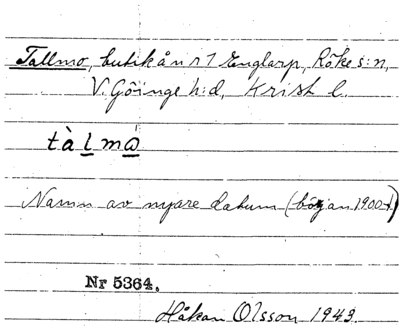 Tallmo, butik å n:r 7 Englarp, Röke s:n,
V. Göinge h:d, Krist l.
tàlmọ
Namn av nyare datum (början 1900-t)
Nr 5364.
Håkan Olsson 1943.